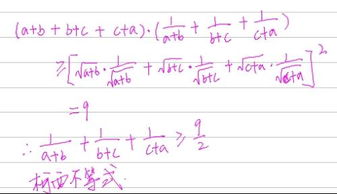 (a+b + b+c + c+a)·(1/(a+b) + 1/(b+c) + 1/(c+a))
≥[√(a+b)·1/√(a+b) + √(b+c)·1/√(b+c) + √(c+a)·1/√(c+a)]²
=9
∴ 1/(a+b) + 1/(b+c) + 1/(c+a) ≥ 9/2
柯西不等式.